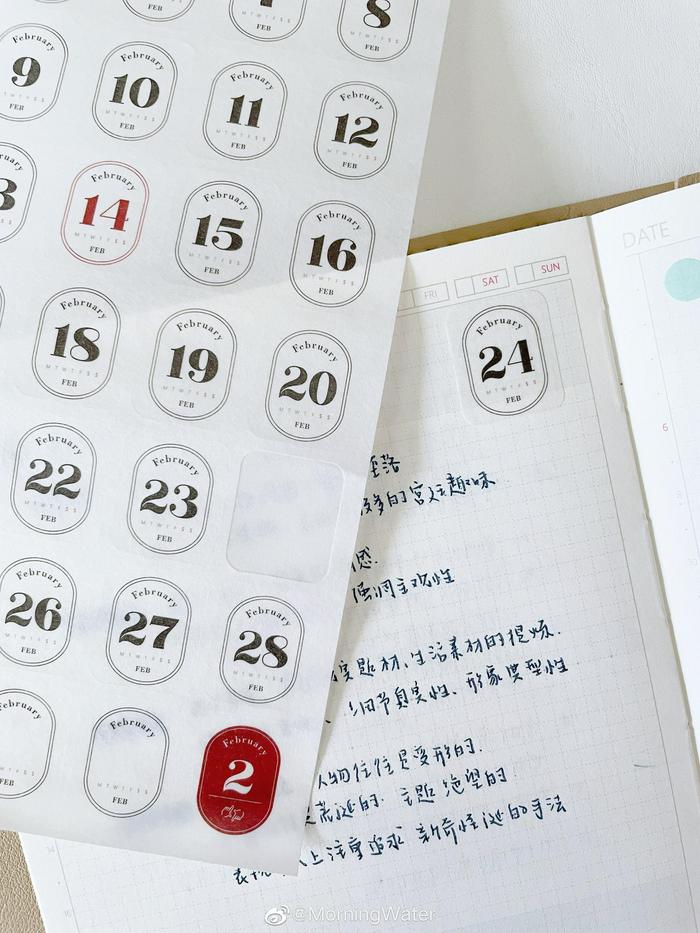 8
FEB
FEB
February
9
FEB
February
10
M T W T F S S
FEB
February
11
M T W T F S S
FEB
February
12
M T W T F S S
FEB
3
February
14
M T W T F S S
FEB
February
15
M T W T F S S
FEB
February
16
M T W T F S S
FEB
February
18
M T W T F S S
FEB
February
19
M T W T F S S
FEB
February
20
M T W T F S S
FEB
February
22
M T W T F S S
FEB
February
23
M T W T F S S
FEB
February
26
M T W T F S S
FEB
February
27
M T W T F S S
FEB
February
28
M T W T F S S
FEB
February
FEB
February
M T W T F S S
FEB
February
2
FRI
SAT
SUN
February
24
M T W T F S S
FEB
DATE
6
多的宫廷趣味
感.
强调主观性
题材、生活素材的提炼.
、细节真实性、形象典型性
人物往往是变形的.
荒诞的. 主题 绝望的
上注重追求 新奇怪诞的手法
@MorningWater